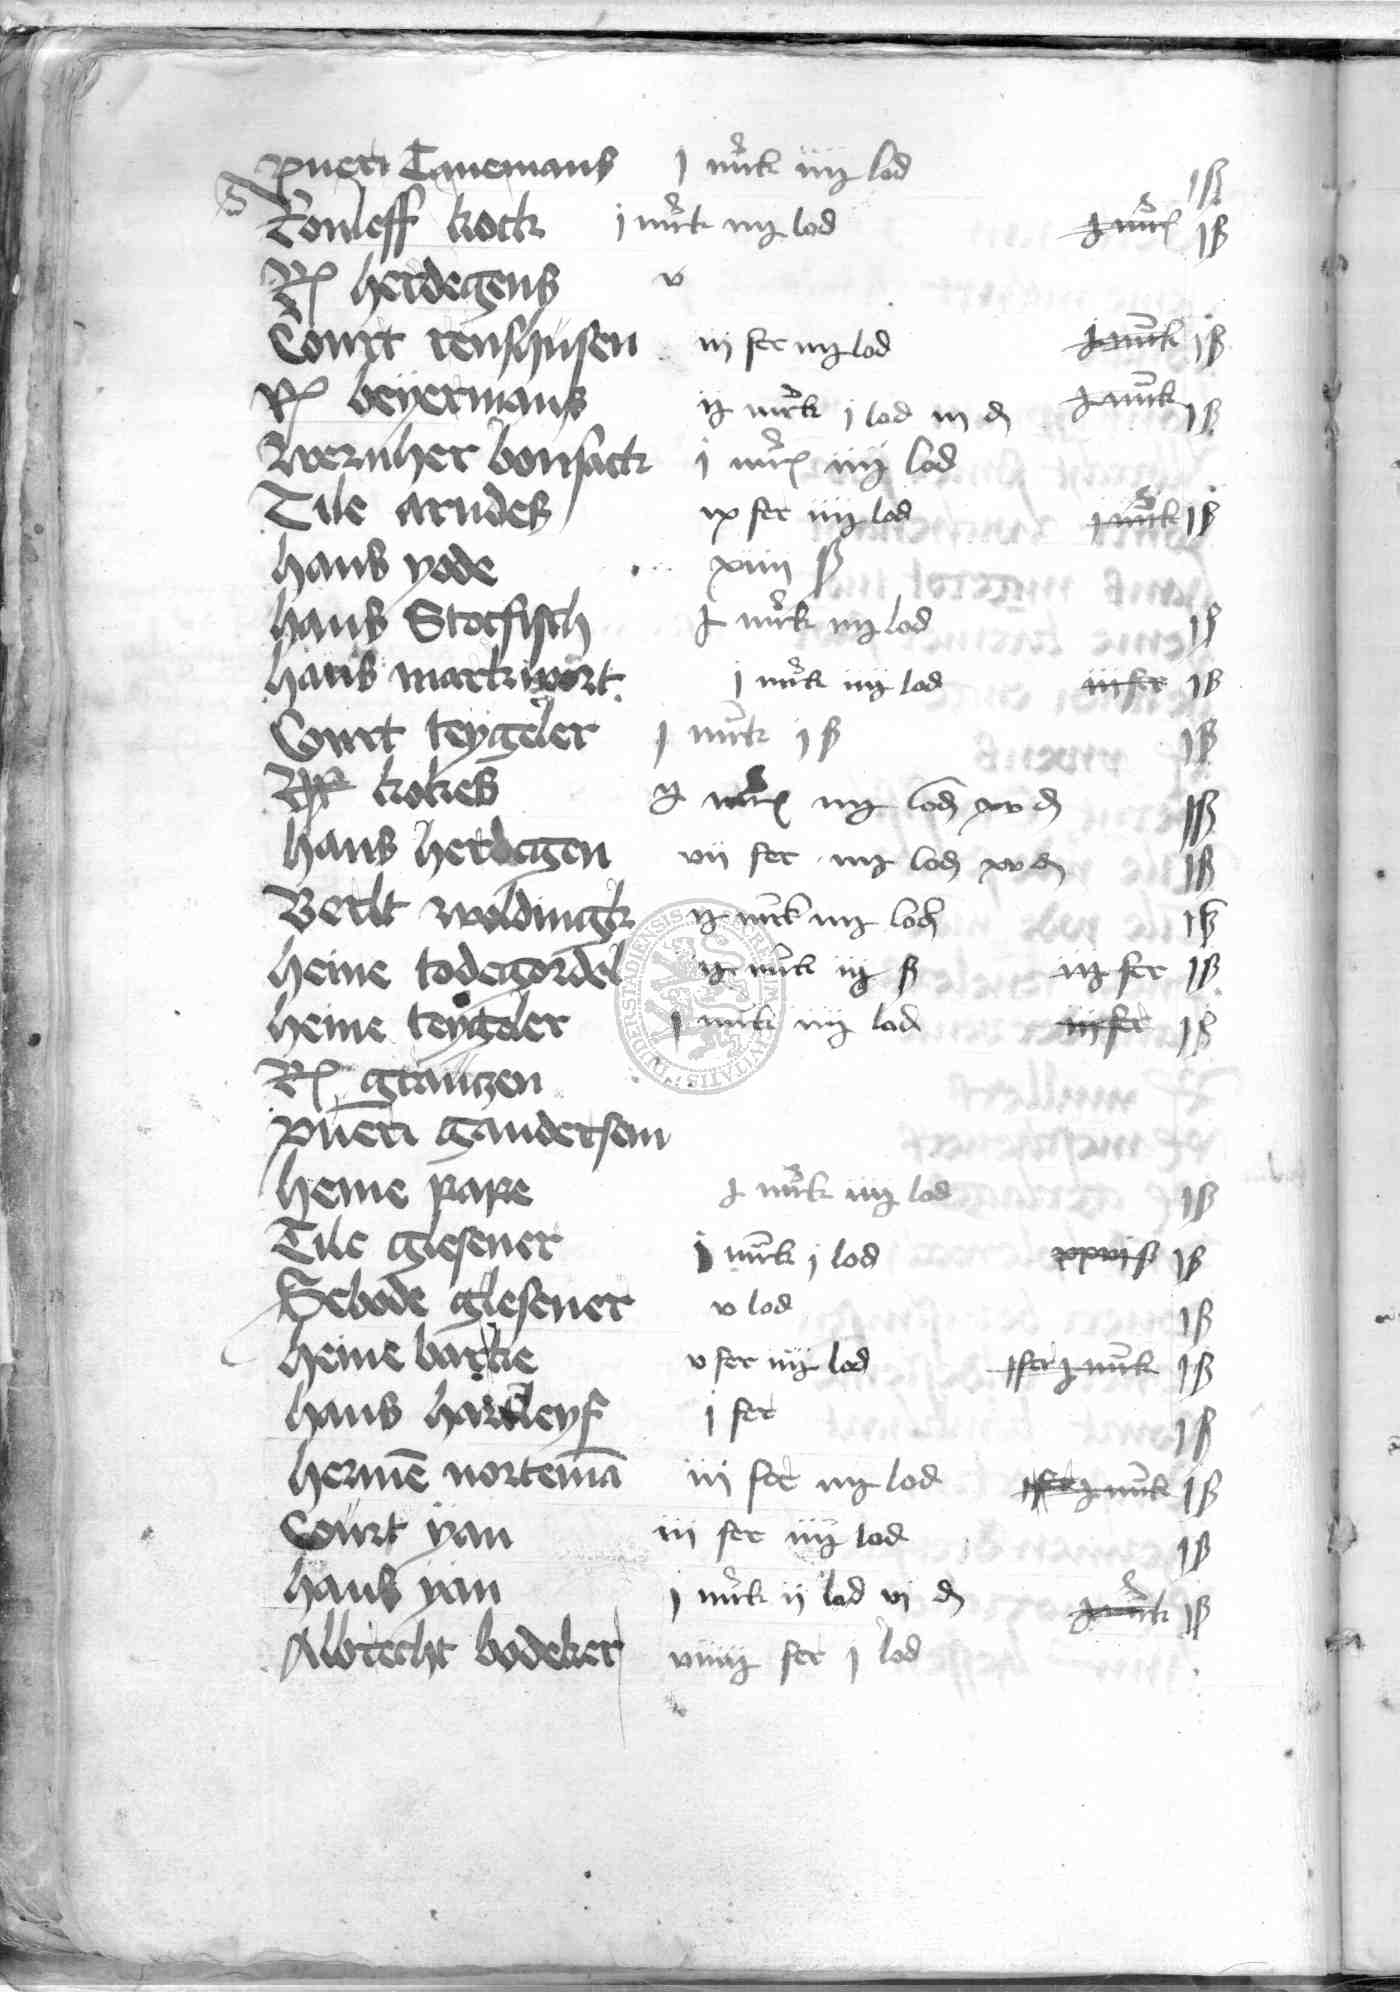 pueri Tanemans j mrk iiij lod j ß
Tonleff kock j mrk iiij lod j mr j ß
R herdegens v
Court renshusen iij fer iiij lod j mrk j ß
R beÿermans ij mrk j lod iij d j mrk j ß
Wernher bonsack j mr iiij lod
Tile arndes ix fer iiij lod j mrk j ß
hans yode xiiij ß
hans Stocfisch j mrk iiij lod j ß
hans markwort j mrk iiij lod iij fer j ß
Court teÿgeler j mrk j ß j ß
R kokes mr iiij lod xv d j ß
hans herdegen vii fer iiij lod xv d j ß
Berlt woldingk ij mrk iiij lod j ß
heine todegordel ij mrk iij ß iij fer j ß
heine teÿgeler j mrk iiij lod iij fer j ß
R grantzen
pueri gandersem
heine pape j mrk iiij lod j ß
Tile glesener j mrk j lod xxvi ß j ß
Sebode glesener v lod j ß
heine barke v fer iiij lod j fer j mrk j ß
hans hardeyf j fer j ß
hermē nortemā iij fer iiij lod j fer j mrk j ß
Court yan iij fer iiij lod j ß
hans yan j mrk ij lod vj d j mrk j ß
Albrecht bodeker fer j lod